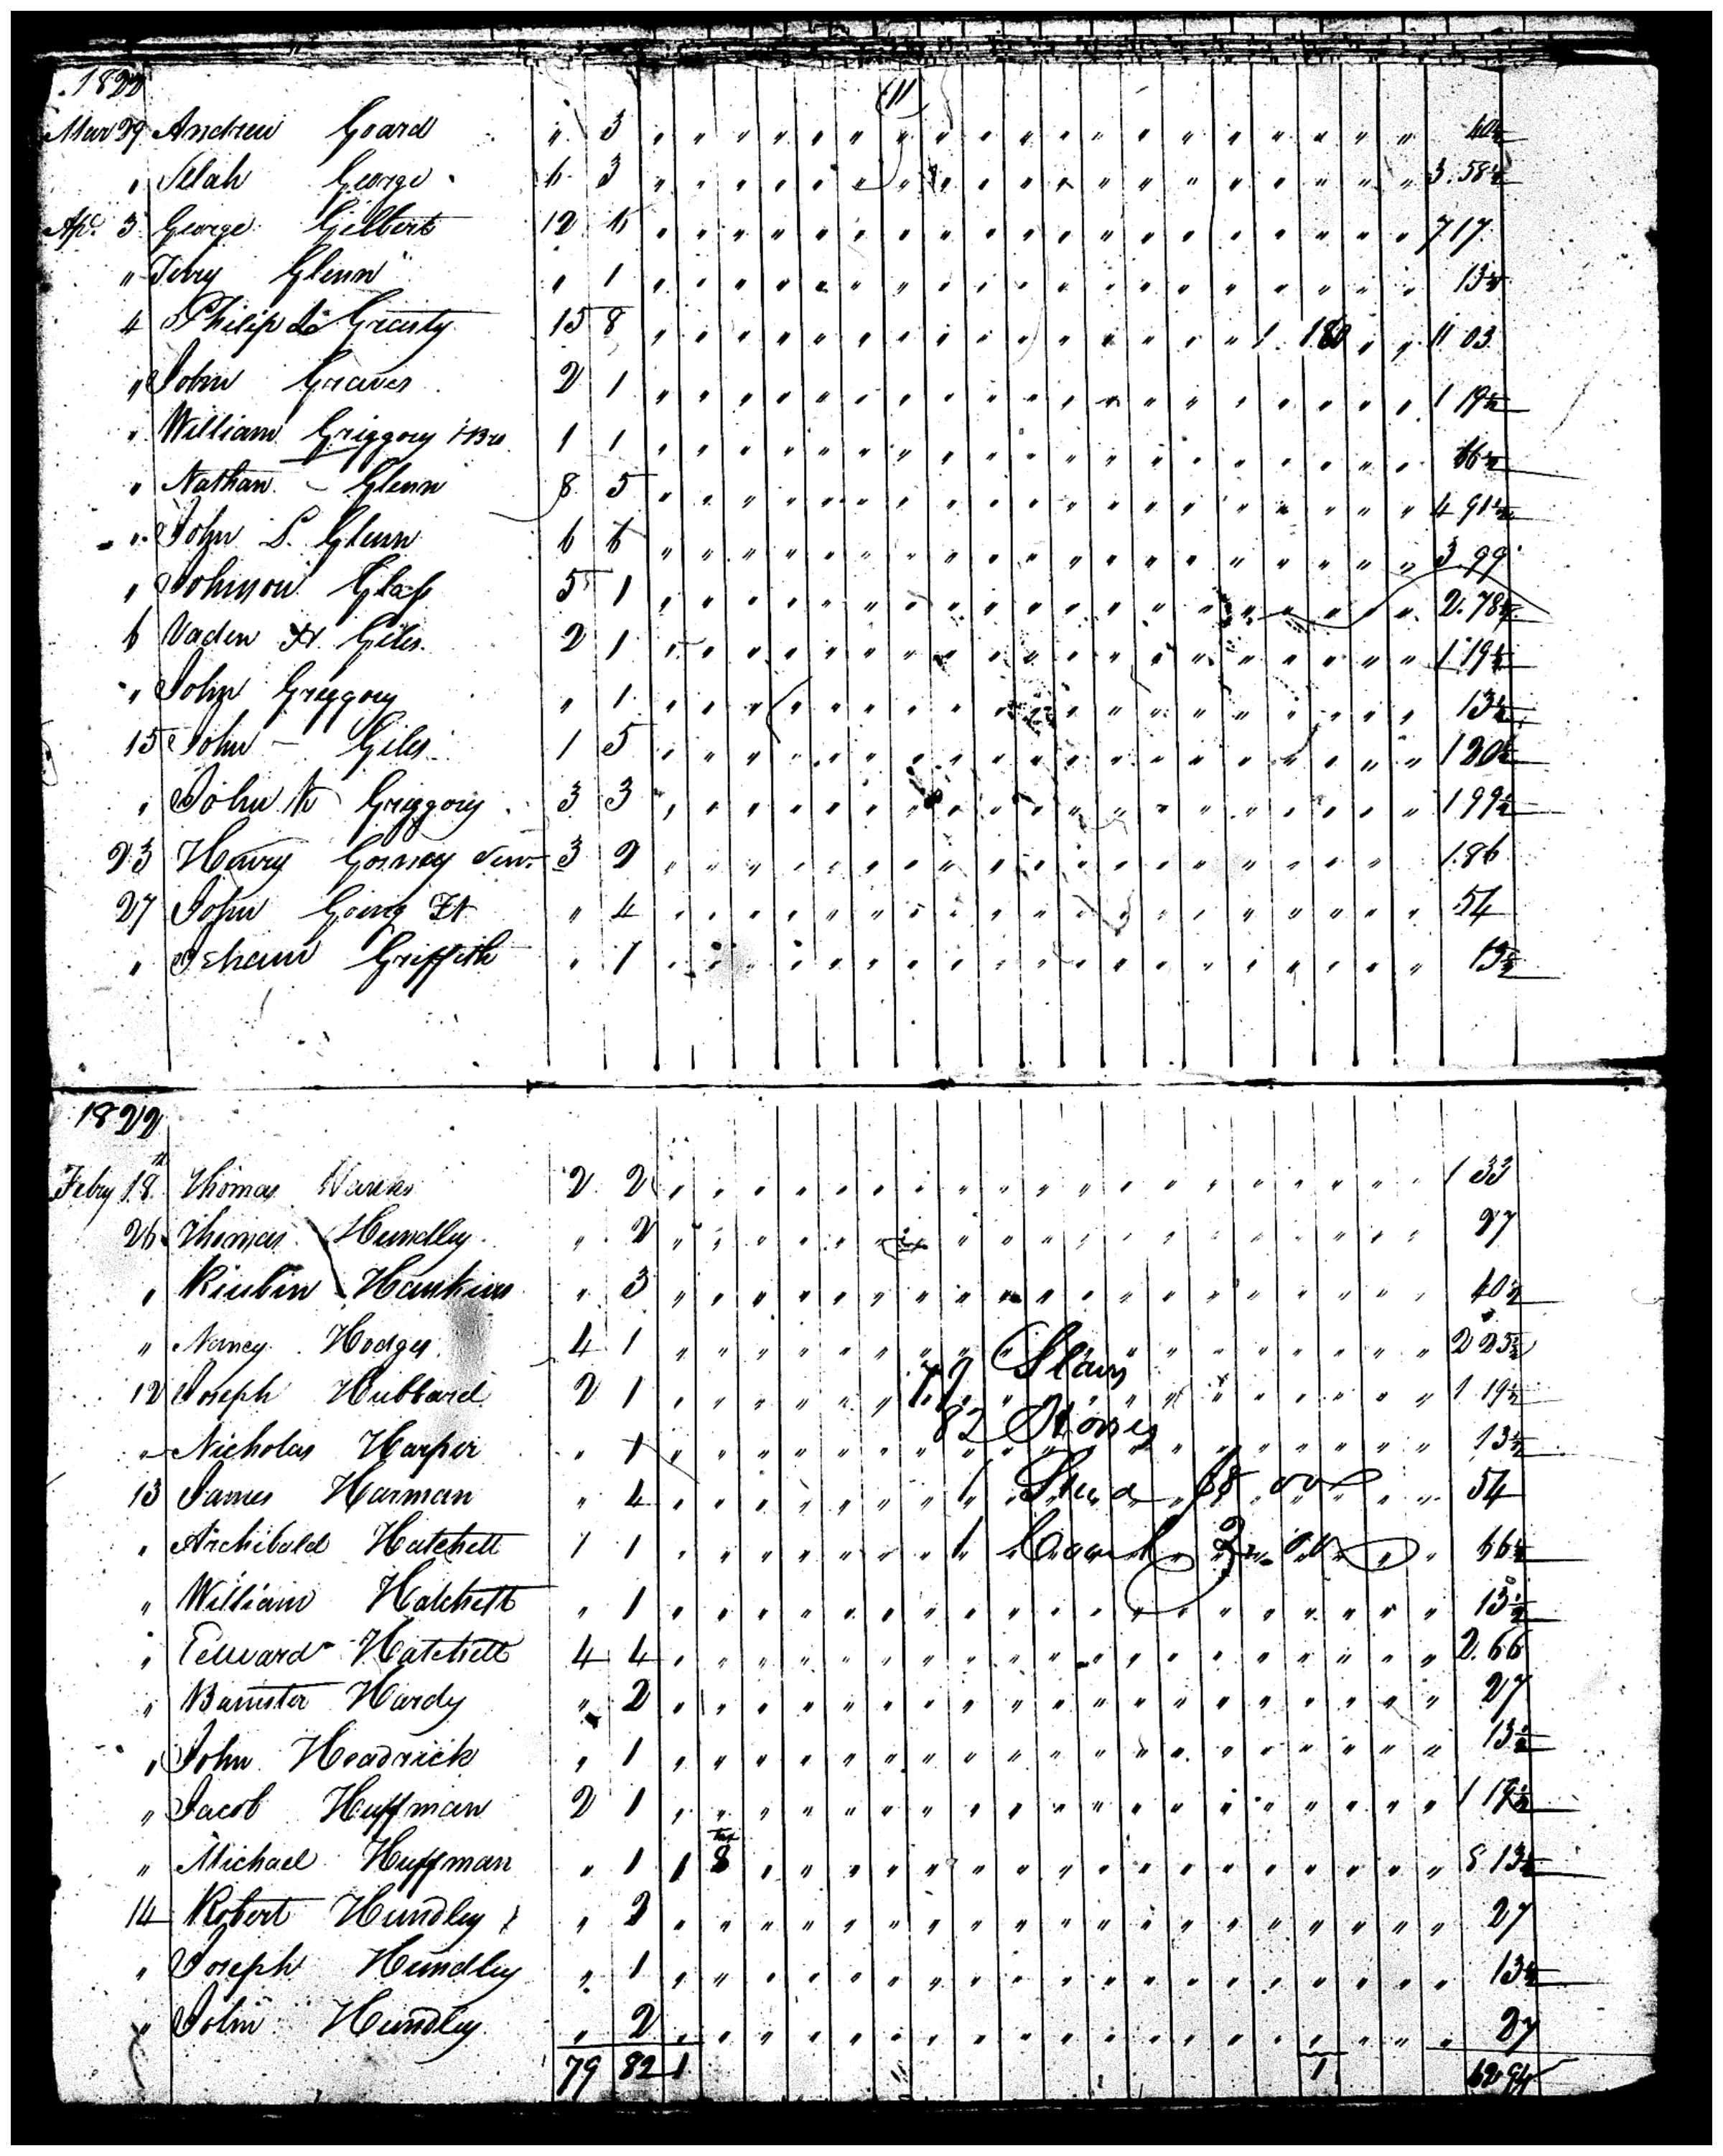 1822
(11)
Mar 29 Andrew Goard " 3 " " " " " " " " " " " " " " " " " " " 40½
" Selah George 6 3 " " " " " " " " " " " " " " " " " " " 3.58½
Ap. 3 George Gilbert 12 6 " " " " " " " " " " " " " " " " " " " 7 17
" Glenn " 1 " " " " " " " " " " " " " " " " " " " 13½
4 Philip Grasty 15 8 " " " " " " " " " " " " " " " 1 180 " " 11 03
" John Graves 2 1 " " " " " " " " " " " " " " " " " " " 1 19½
" William Griggory 1 1 " " " " " " " " " " " " " " " " " " " 66½
" Nathan Glenn 8 5 " " " " " " " " " " " " " " " " " " " 4 91½
" John S. Glenn 6 6 " " " " " " " " " " " " " " " " " " " 3.99
" Johnson Glass 5 1 " " " " " " " " " " " " " " " " " " " 2.78½
6 Vaden H Giles 2 1 " " " " " " " " " " " " " " " " " " " 1 19½
" John Greggory " 1 " " " " " " " " " " " " " " " " " " " 13½
15 John Giles 1 5 " " " " " " " " " " " " " " " " " " " 1 20½
" John Greggory 3 3 " " " " " " " " " " " " " " " " " " " 1 99½
23 Henry Senr 3 2 " " " " " " " " " " " " " " " " " " 1.86
27 John Going " 4 " " " " " " " " " " " " " " " " " " " 54
" Isham Griffith " 1 " " " " " " " " " " " " " " " " " " " 13½
1822
Febry 18th Thomas 2 2 " " " " " " " " " " " " " " " " " " " 1 33
26 Thomas Hundley " 2 " " " " " " " " " " " " " " " " " " " 27
" Reubin Hankins " 3 " " " " " " " " " " " " " " " " " " " 40½
" Nancy Hodges 4 1 " " " " " " " " " " " " " " " " " " " 2 25½
79 Slaves
12 Joseph Hubbard 2 1 " " " " " " " " " " " " " " " " " " " 1 19½
82 Horses
" Nicholas Harper " 1 " " " " " " " " " " " " " " " " " " " 13½
13 James Harman " 4 " " " " " " " " " " " " " " " " " " " 54
1 Stud $8 00
" Archibald Hatchett 1 1 " " " " " " " " " " " " " " " " " " " 66½
1 Coach
" William Hatchett " 1 " " " " " " " " " " " " " " " " " " " 13½
" Edward Hatchett 4 4 " " " " " " " " " " " " " " " " " " " 2.66
" Banister Hardy " 2 " " " " " " " " " " " " " " " " " " " 27
" John Headrick " 1 " " " " " " " " " " " " " " " " " " " 13½
" Jacob Huffman 2 1 " " " " " " " " " " " " " " " " " " " 1 19½
" Michael Huffman " 1 1 8 " " " " " " " " " " " " " " " " " 8 13½
14 Robert Hundley " 2 " " " " " " " " " " " " " " " " " " " 27
" Joseph Hundley " 1 " " " " " " " " " " " " " " " " " " " 13½
" John Hundley " 2 " " " " " " " " " " " " " " " " " " " 27
79 82 1 1